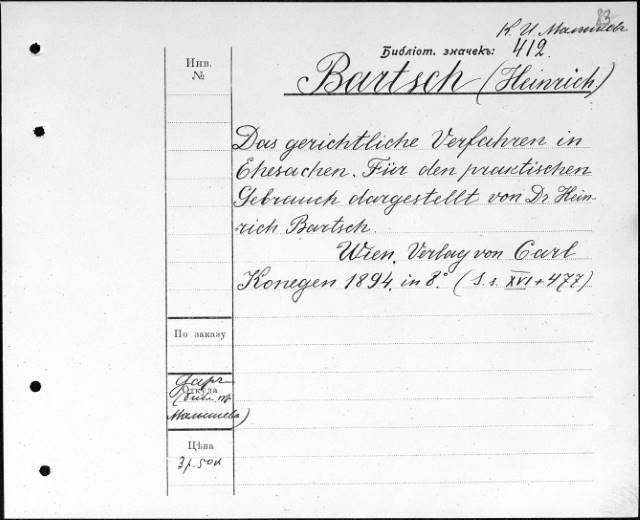 83
К. И. Малышев
Библіот. значекъ: 412
Инв.
№
Bartsch (Heinrich)
Das gerichtliche Verfahren in
Ehesachen. Für den praktischen
Gebrauch dargestellt von Dr. Hein-
rich Bartsch.
Wien, Verlag von Carl
Konegen 1894, in 8.° (S. s. XVI + 477)
По заказу
Даръ
Откуда
(библ. пр.
Малышева)
Цѣна
3 р. 50 к